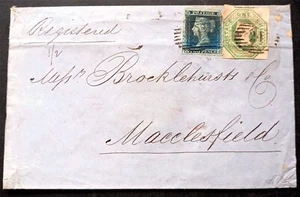 Registered
1/2
POSTAGE
Messrs Brocklehurst & Co
Macclesfield